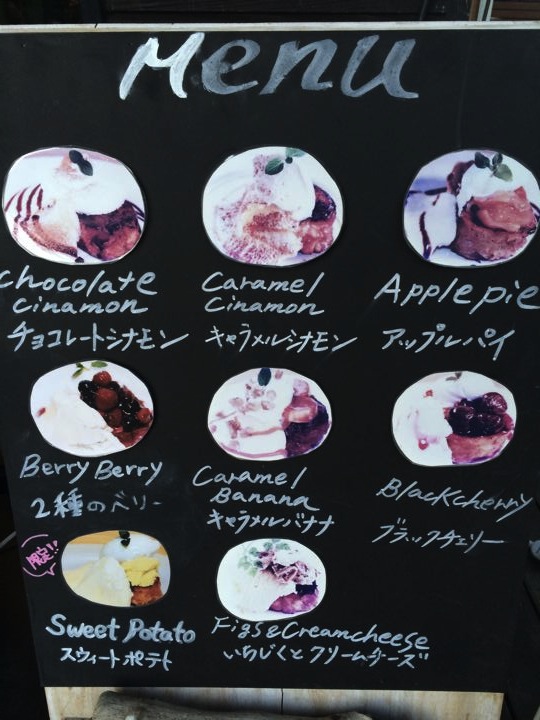 Menu
Chocolate
Cinamon
チョコレートシナモン
Caramel
Cinamon
キャラメルシナモン
Apple pie
アップルパイ
Berry Berry
2種のベリー
Caramel
Banana
キャラメルバナナ
Blackcherry
ブラックチェリー
限定!!
Sweet Potato
スウィートポテト
Figs&Creamcheese
いちじくとクリームチーズ